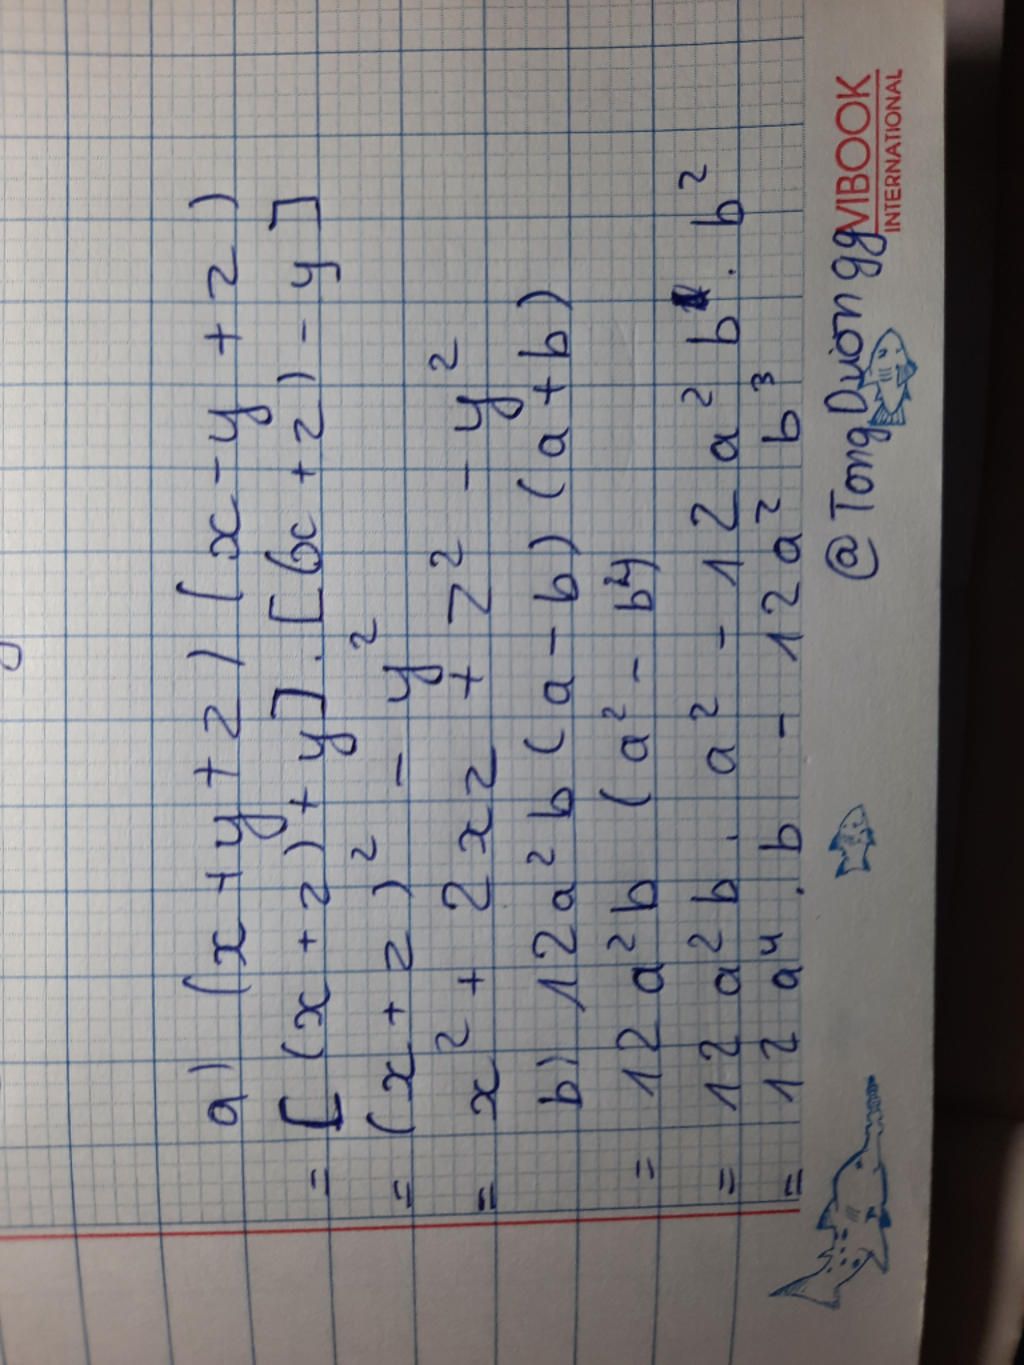 a) (x + y + z) (x - y + z)
= [(x + z) + y] . [(x + z) - y]
= (x + z)² - y²
= x² + 2xz + z² - y²
b) 12a²b (a - b) (a + b)
= 12a²b (a² - b²)
= 12a²b . a² - 12a²b . b²
= 12a⁴ . b - 12a²b³
@TongDuongg
VIBOOK
INTERNATIONAL